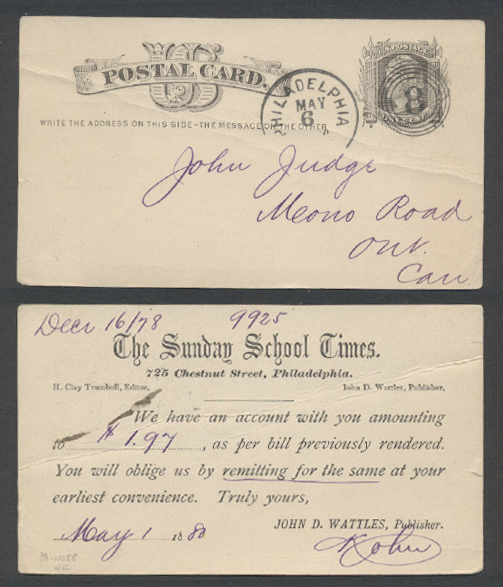 US
POSTAL CARD.
WRITE THE ADDRESS ON THIS SIDE-THE MESSAGE ON THE OTHER
PHILADELPHIA
MAY
6
U.S. POSTAGE
8
John Judge
Meono Road
Ont.
Can
Decr 16/78 9925
The Sunday School Times.
725 Chestnut Street, Philadelphia.
H. Clay Trumbull, Editor. John D. Wattles, Publisher.
We have an account with you amounting
to $1.97, as per bill previously rendered.
You will oblige us by remitting for the same at your
earliest convenience. Truly yours,
JOHN D. WATTLES, Publisher.
May 1 1880